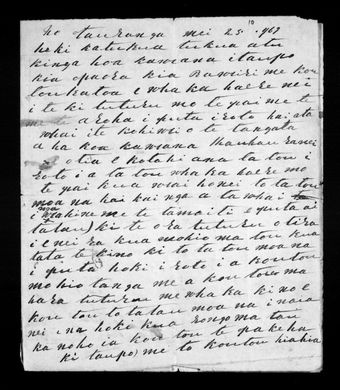 ho tauranga mei 25 10 1867
he ki katukua tukua atu
kinga hoa kawana i taupo
kia paora kia Rawiri me kou
tou katoa e whaka haere nei
i te ki tuturu mo te pai me te
me te aroha i puta i roto hai ata
whai i te kohiwi o te tangata
a ha koa kawana
otia e kotahi ana ta tou i
roto i a ta tou whaka haere mo
te pai kua whai honei to ta tou
moana hai kainga a ta whai
i nga wahine me te tamaiti e puta ai
tatau) ki te ora tuturu otira
i e nei ra kua mohio ma tou kua
tata te kino ki to ta tou moana
i puta hoki i roto i a koutou
mohio tanga me a koutou ma
hara tuturu me whaka ki no e
kou tou to tatau moana i naia
nei ina hoki kua rongo ma tau
ka noho ia koutou te pakeha
ki taupo) me to koutou hiahia